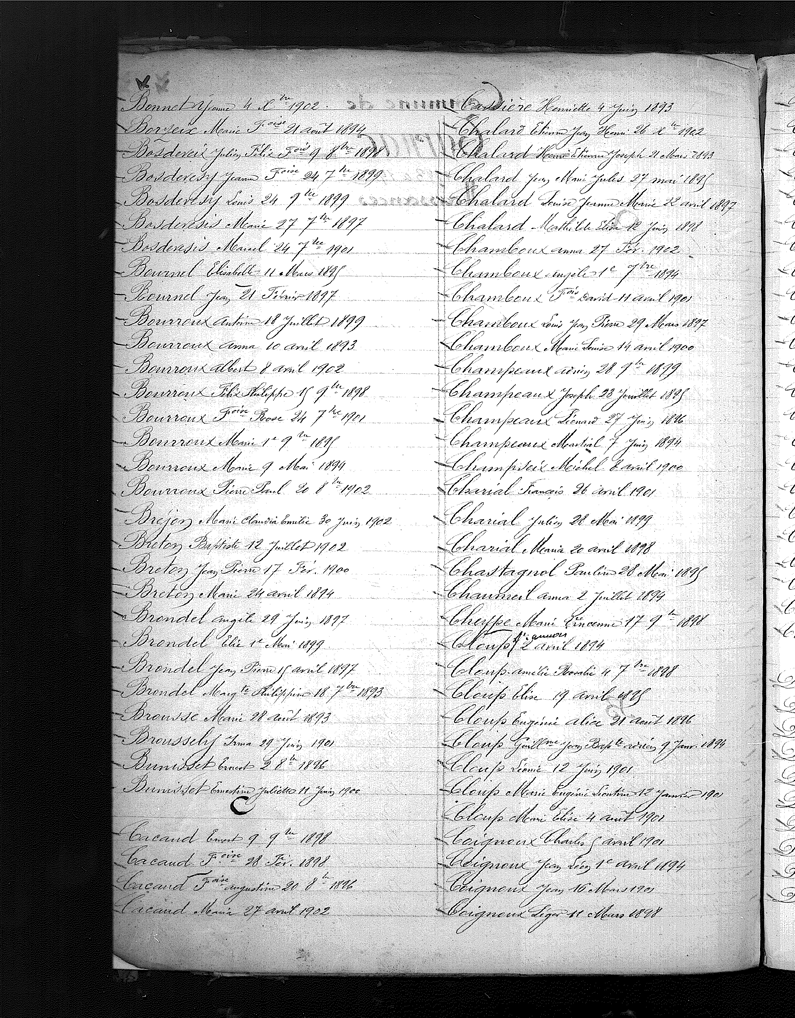 Bonnet Yvonne 4 Xbre 1902.
Borseix Marie Foise 21 août 1894
Bosdeveix Julien Félix Fois 9 8bre 1898
Bosdevesy Jeanne Foise 24 7bre 1899
Bosdevesy Louis 24 9bre 1899
Bosdevesis Marie 27 7bre 1897
Bosdevesis Marcel 24 7bre 1901
Bournel Elisabeth 11 Mars 1895
Bournel Jean 21 Février 1897
Bourroux Antoine 18 Juillet 1899
Bourroux anna 10 avril 1893
Bourroux albert 8 avril 1902
Bourroux Félix Philippe 15 9bre 1898
Bourroux Foise Rose 24 7bre 1901
Bourroux Marie 1er 9bre 1895
Bourroux Marie 9 Mai 1894
Bourroux Pierre Paul 20 8bre 1902
Bréjon Marie Claudia Emilie 30 Juin 1902
Breton Baptiste 12 Juillet 1902
Breton Jean Pierre 17 Fév. 1900
Breton Marie 24 avril 1894
Brondel angèle 29 Juin 1897
Brondel Elie 1er Mai 1899
Brondel Jean Pierre 15 avril 1897
Brondel Margte Philippine 18 7bre 1893
Brousse Marie 28 août 1893
Broussely Irma 29 Juin 1901
Bunisset Ernest 2 8bre 1896
Bunisset Ernestine Juliette 11 Juin 1900
C
Cacaud Ernest 9 9bre 1898
Cacaud Foise 28 Fév. 1898
Cacaud Foise augustine 20 8bre 1896
Cacaud Marie 27 avril 1902
Cassière Henriette 4 Juin 1893
Chalard Etienne Jean Henri 26 Xbre 1902
Chalard Henri Etienne Joseph 21 Mars 1893
Chalard Jean Marie Jules 27 mai 1895
Chalard Louise Jeanne Marie 22 avril 1897
Chalard Mathilde Elise 12 Juin 1898
Chamboux anna 27 Fév. 1902
Chamboux angèle 1er 7bre 1894
Chamboux Fois David 11 avril 1901
Chamboux Louis Jean Pierre 29 Mars 1897
Chamboux Marie Louise 14 avril 1900
Champeaux adrien 28 9bre 1899
Champeaux Joseph 28 Juillet 1895
Champeaux Léonard 27 Juin 1896
Champeaux Martial 7 Juin 1894
Champseix Michel 8 avril 1900
Charial François 26 avril 1901
Charial Julien 28 Mai 1899
Charial Marie 20 avril 1898
Chastagnol Pauline 28 Mai 1895
Chaumeil anna 2 Juillet 1894
Cheype Marie Vincenne 17 9bre 1898
Cloup 2 avril 1894
Cloup amélie Rosalie 4 7bre 1898
Cloup Elise 19 avril 1895
Cloup Eugénie alice 21 août 1896
Cloup Guillme Jean Bapte adrien 9 Janv. 1894
Cloup Léonie 12 Juin 1901
Cloup Marie Eugénie Léontine 12 Janvier 1901
Cloup Marie Elise 4 août 1901
Coignoux Charles 5 avril 1901
Coignoux Jean Léon 1er avril 1894
Coignoux Jean 16 Mars 1901
Coignoux Léger 11 Mars 1898